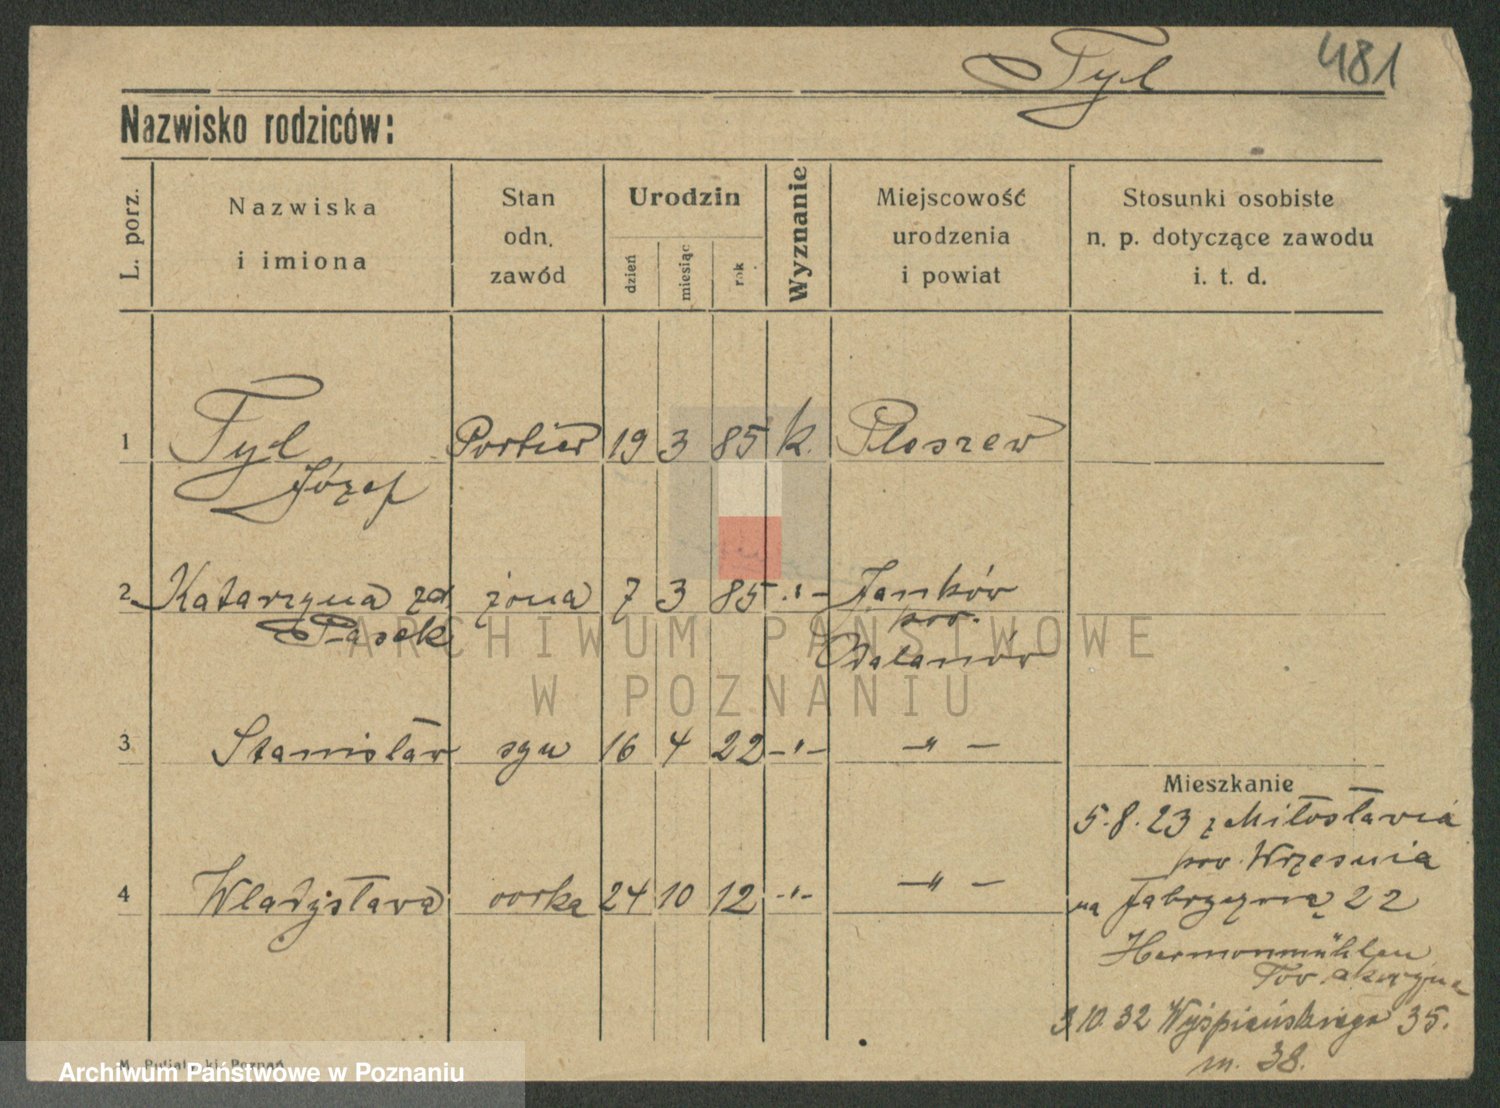 Tyl 481
Nazwisko rodziców:
L. porz.
Nazwiska
i imiona
Stan
odn.
zawód
Urodzin
dzień
miesiąc
rok
Wyznanie
Miejscowość
urodzenia
i powiat
Stosunki osobiste
n. p. dotyczące zawodu
i. t. d.
1 Tyl Portier 19 3 85 k. Pleszew
Józef
2 Katarzyna zd żona 7 3 85 -"- Janków
Pasek pow.
Odalanów
3 Stanisław syn 16 4 22 -"- -"-
Mieszkanie
5.8.23 z Miłosławia
pow. Wrzesnia
4 Władysława corka 24 10 12 -"- -"-
na Fabryczną 22
Hermanmühlen
Tow. akcyjne
3.10.32 Wyśpiańskiego 35.
m. 38.
ARCHIWUM PAŃSTWOWE
W POZNANIU
Archiwum Państwowe w Poznaniu